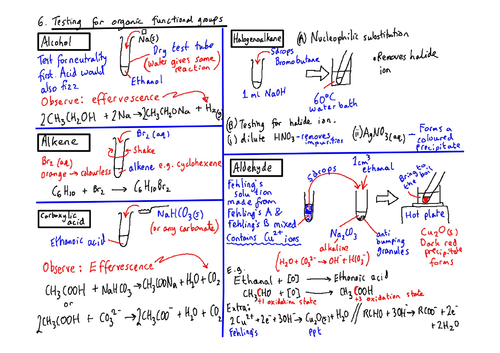 6. Testing for organic functional groups
Alcohol
Na(s)
Test for neutrality
first. Acid would
also fizz
Dry test tube
(water gives same
reaction)
Ethanol
Observe: effervescence
2CH3CH2OH + 2Na → 2CH3CH2ONa + H2(g)
Alkene
Br2 (aq)
Shake
Br2 (aq)
Orange → colourless
alkene e.g. cyclohexene
C6H10 + Br2 → C6H10Br2
Carboxylic
acid
NaHCO3(s)
(or any carbonate)
Ethanoic acid
Observe: Effervescence
CH3COOH + NaHCO3 → CH3COONa + H2O + CO2
or
2CH3COOH + CO3²⁻ → 2CH3COO⁻ + H2O + CO2
Halogenoalkane
(A) Nucleophilic substitution
5drops
Bromobutane
Removes halide
ion
1 mL NaOH
60°C
water bath
(B) Testing for halide ion.
(i) dilute HNO3 - removes
impurities
(ii) AgNO3(aq) - Forms a
coloured
precipitate
Aldehyde
Fehling's
solution
made from
Fehling's A &
Fehling's B mixed
Contains Cu²⁺ ions
5drops
1cm³
ethanal
Bring to
the boil
Hot plate
Na2CO3
alkaline
(H2O + CO3²⁻ → OH⁻ + HCO3⁻)
anti
bumping
granules
Cu2O(s)
Dark red
precipitate
forms
E.g.
Ethanal + [O] → Ethanoic acid
CH3CHO + [O] → CH3COOH
+1 oxidation state
+3 oxidation state
Extra:
2Cu²⁺ + 2e⁻ + 3OH⁻ → Cu2O(s) + H2O // RCHO + 3OH⁻ → RCOO⁻ + 2e⁻
+ 2H2O
Fehling's
ppt